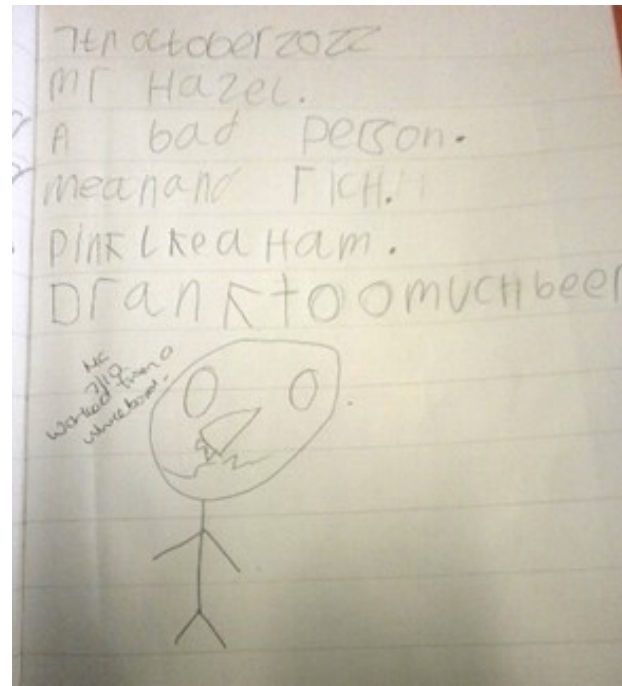 7th october 2022
Mr Hazel.
A bad person.
mean and rICH.
pink Lkea Ham.
Drank toomucH beer
NC
7/10
Worked from a
whiteboard.